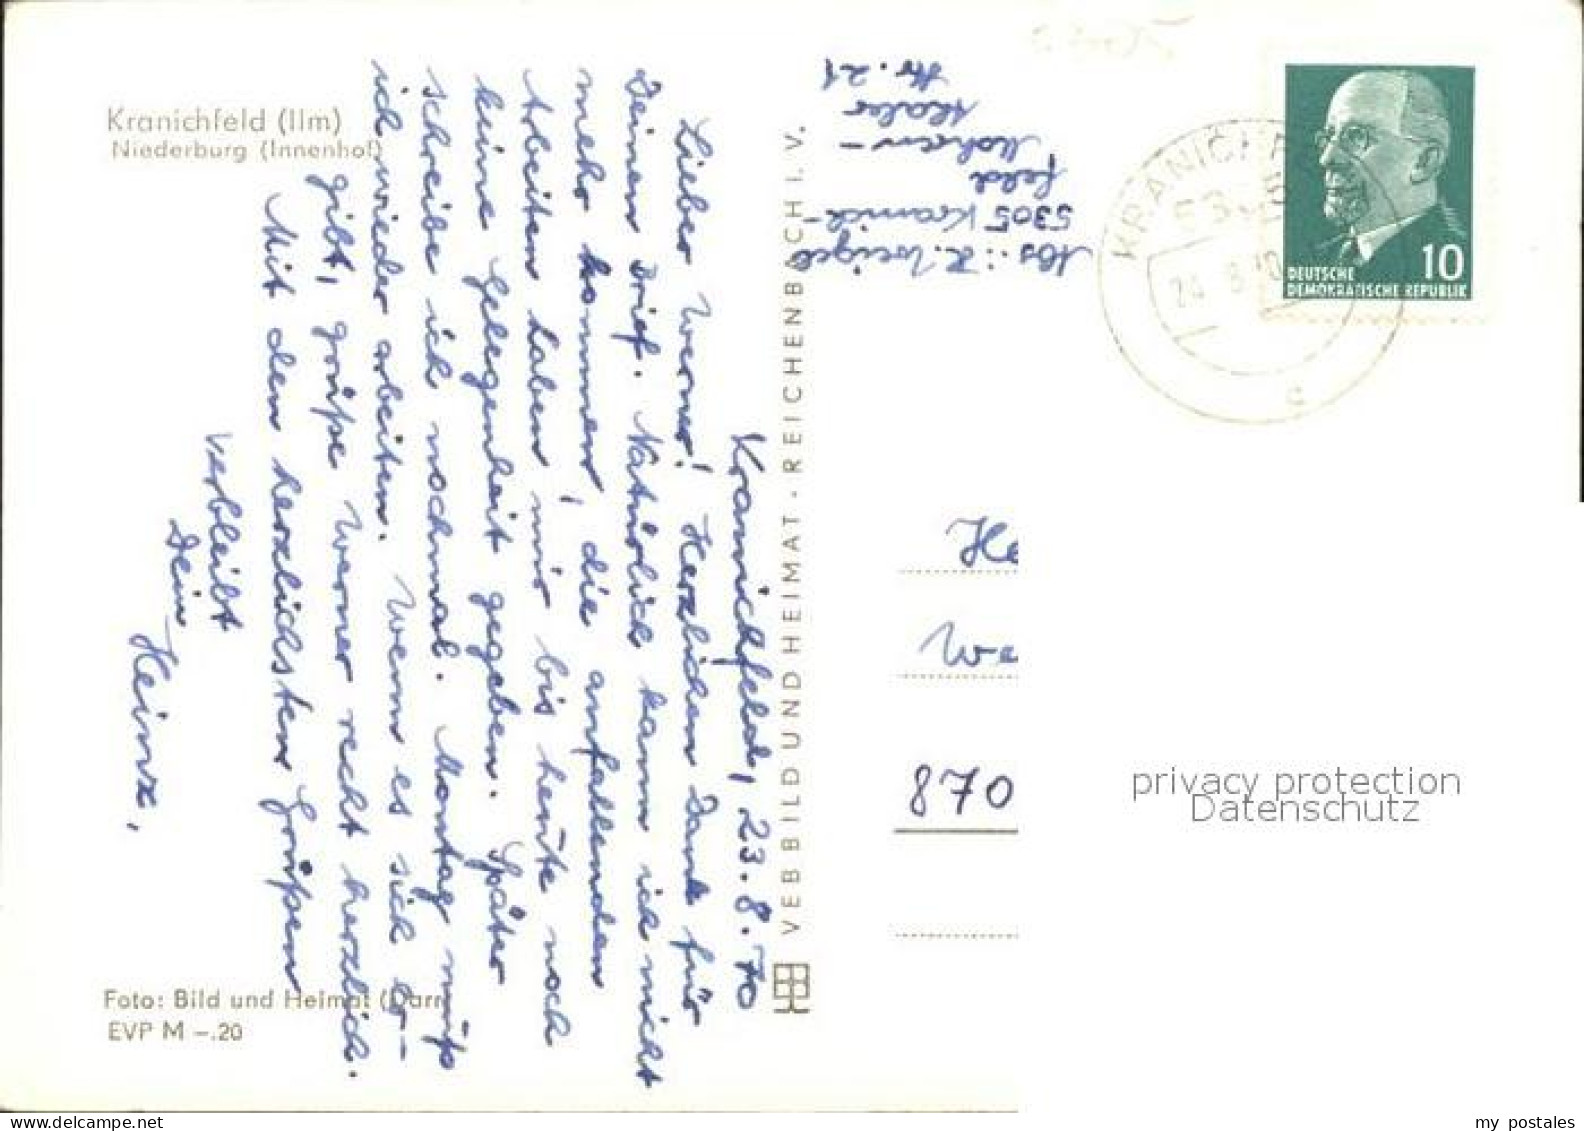 Kranichfeld (Ilm)
Niederburg (Innenhof)
Kranichfeld, 23.8.70
Lieber Werner! Herzlichen Dank für
Deinen Brief. Natürlich kann ich nicht
mehr kommen, die anfallenden
Arbeiten haben mir bis heute noch
keine Gelegenheit gegeben. Später
schreibe ich nochmal. Montag muß
ich wieder arbeiten. Wenn es sich er-
gibt, grüße Werner recht herzlich.
Mit den herzlichsten Grüßen
verbleibt
Dein Heinz,
Foto: Bild und Heimat (Darr
EVP M –.20
VEB BILD UND HEIMAT · REICHENBACH I. V.
Abs.: H. Weigel
5305 Kranich-
feld
Mohren-
Nr. 21
KRANICHF
24. 8. 70
c
10
DEUTSCHE
DEMOKRATISCHE REPUBLIK
He
We
870
privacy protection
Datenschutz
my postales